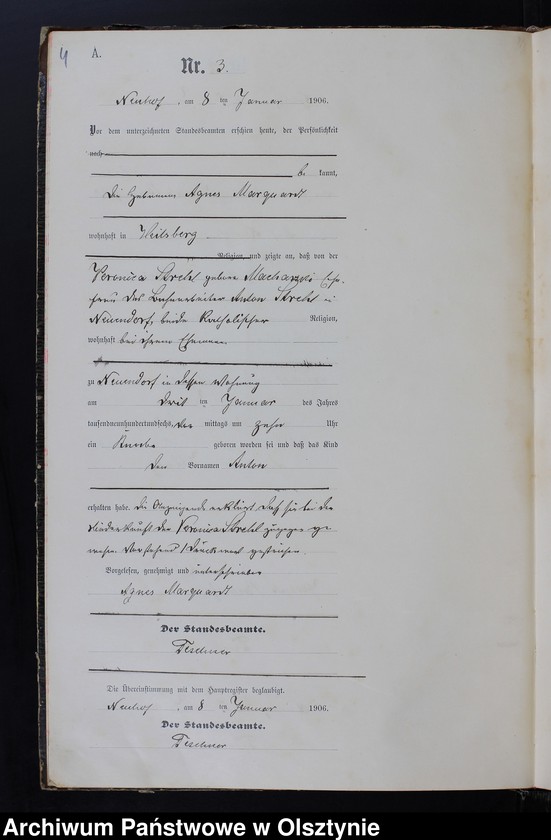 4
A.
Nr. 3.
Neuhof, am 8 ten Januar 1906.
Vor dem unterzeichneten Standesbeamten erschien heute, der Persönlichkeit
nach
be kannt,
die Hebamme Agnes Marquardt
wohnhaft in Heilsberg
Religion, und zeigte an, daß von der
Veronica geborene Ehe-
frau des Anton in
Neuendorf, beide katholischer Religion,
wohnhaft bei ihrem Ehemann
zu Neuendorf in dessen Wohnung
am drei ten Januar des Jahres
tausendneunhundertundsechs, mittags um zehn Uhr
ein Knabe geboren worden sei und daß das Kind
den Vornamen Anton
erhalten habe. Die Anzeigende erklärt, daß sie bei der
Niederkunft der Veronica zugegen ge-
wesen. Vorstehend 1 Druckwort gestrichen.
Vorgelesen, genehmigt und unterschrieben
Agnes Marquardt
Der Standesbeamte.
Teschner
Die Übereinstimmung mit dem Hauptregister beglaubigt.
Neuhof, am 8 ten Januar 1906.
Der Standesbeamte.
Teschner
Archiwum Państwowe w Olsztynie